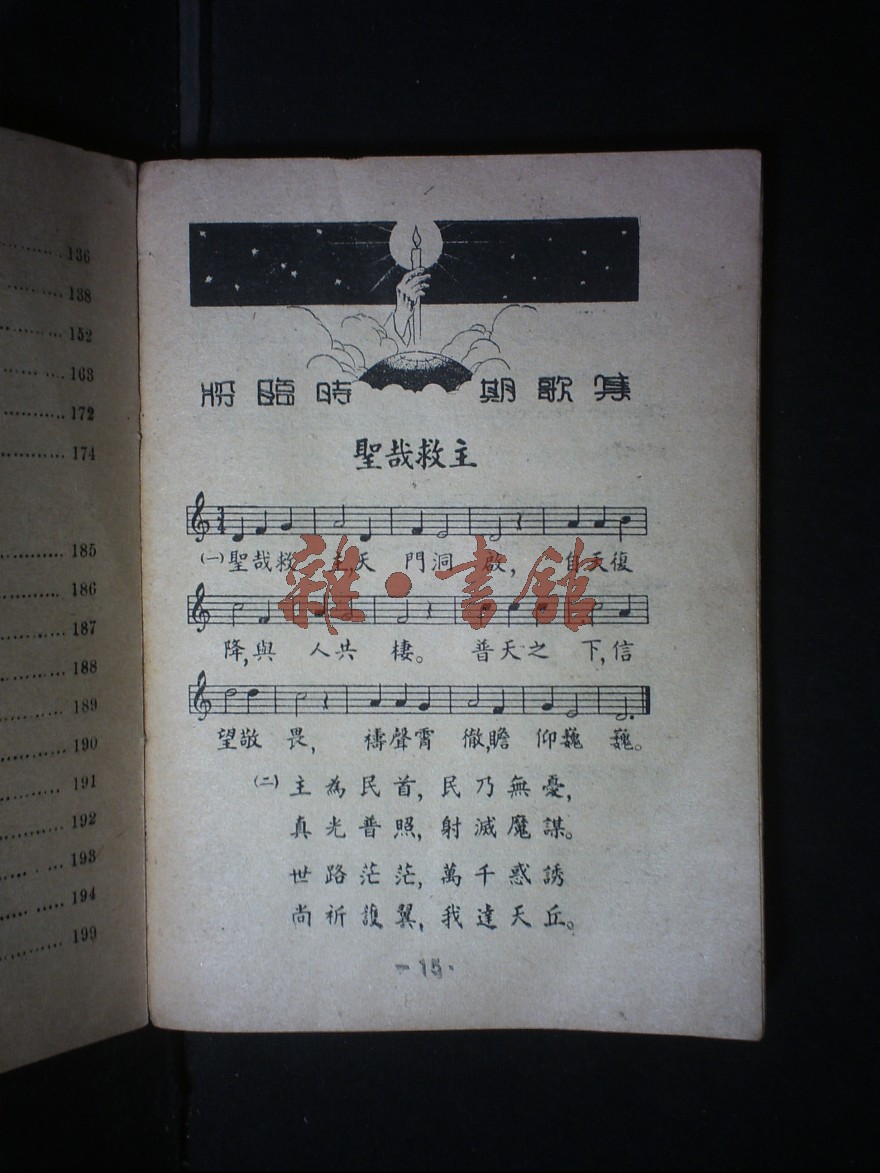 136
138
152
163
172
174
185
186
187
188
189
190
191
192
193
194
199
將臨時期歌集
聖哉救主
3/4
(一)聖哉救主,天門洞啟,自天復
雜·書館
降,與人共棲。普天之下,信
望敬畏,禱聲霄徹,瞻仰巍巍。
(二)主為民首,民乃無憂,
真光普照,射滅魔謀。
世路茫茫,萬千惑誘
尚祈護翼,我達天丘。
-15-